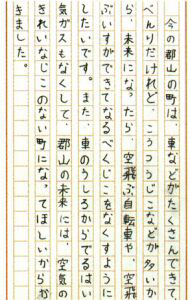 今の郡山の町は、車などがたくさんできて
べんりだけれど、こうつうじこなどが多いか
ら、未来になったら、空飛ぶ自転車や、空飛
ぶいすができてなるべくじこをなくすように
したいです。また、車のうしろからでるはい
気ガスもなくして、郡山の未来には、空気の
きれいなじこのない町になってほしいからか
きました。